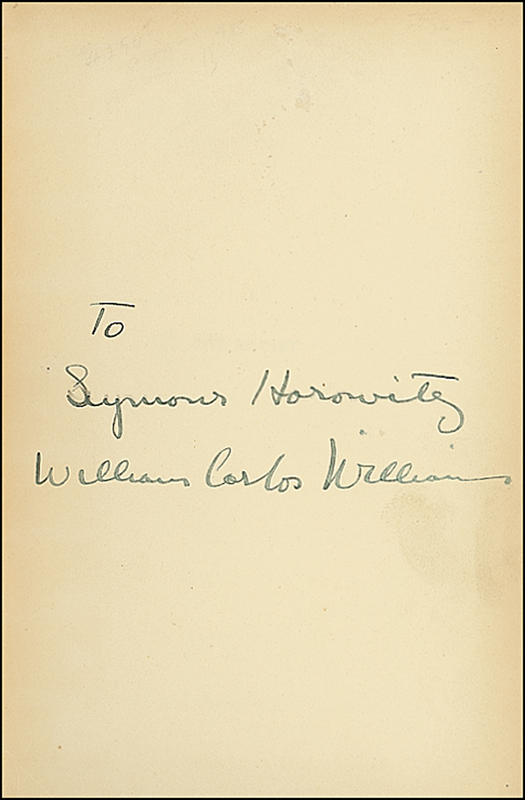 To
Seymour Horowitz
William Carlos Williams